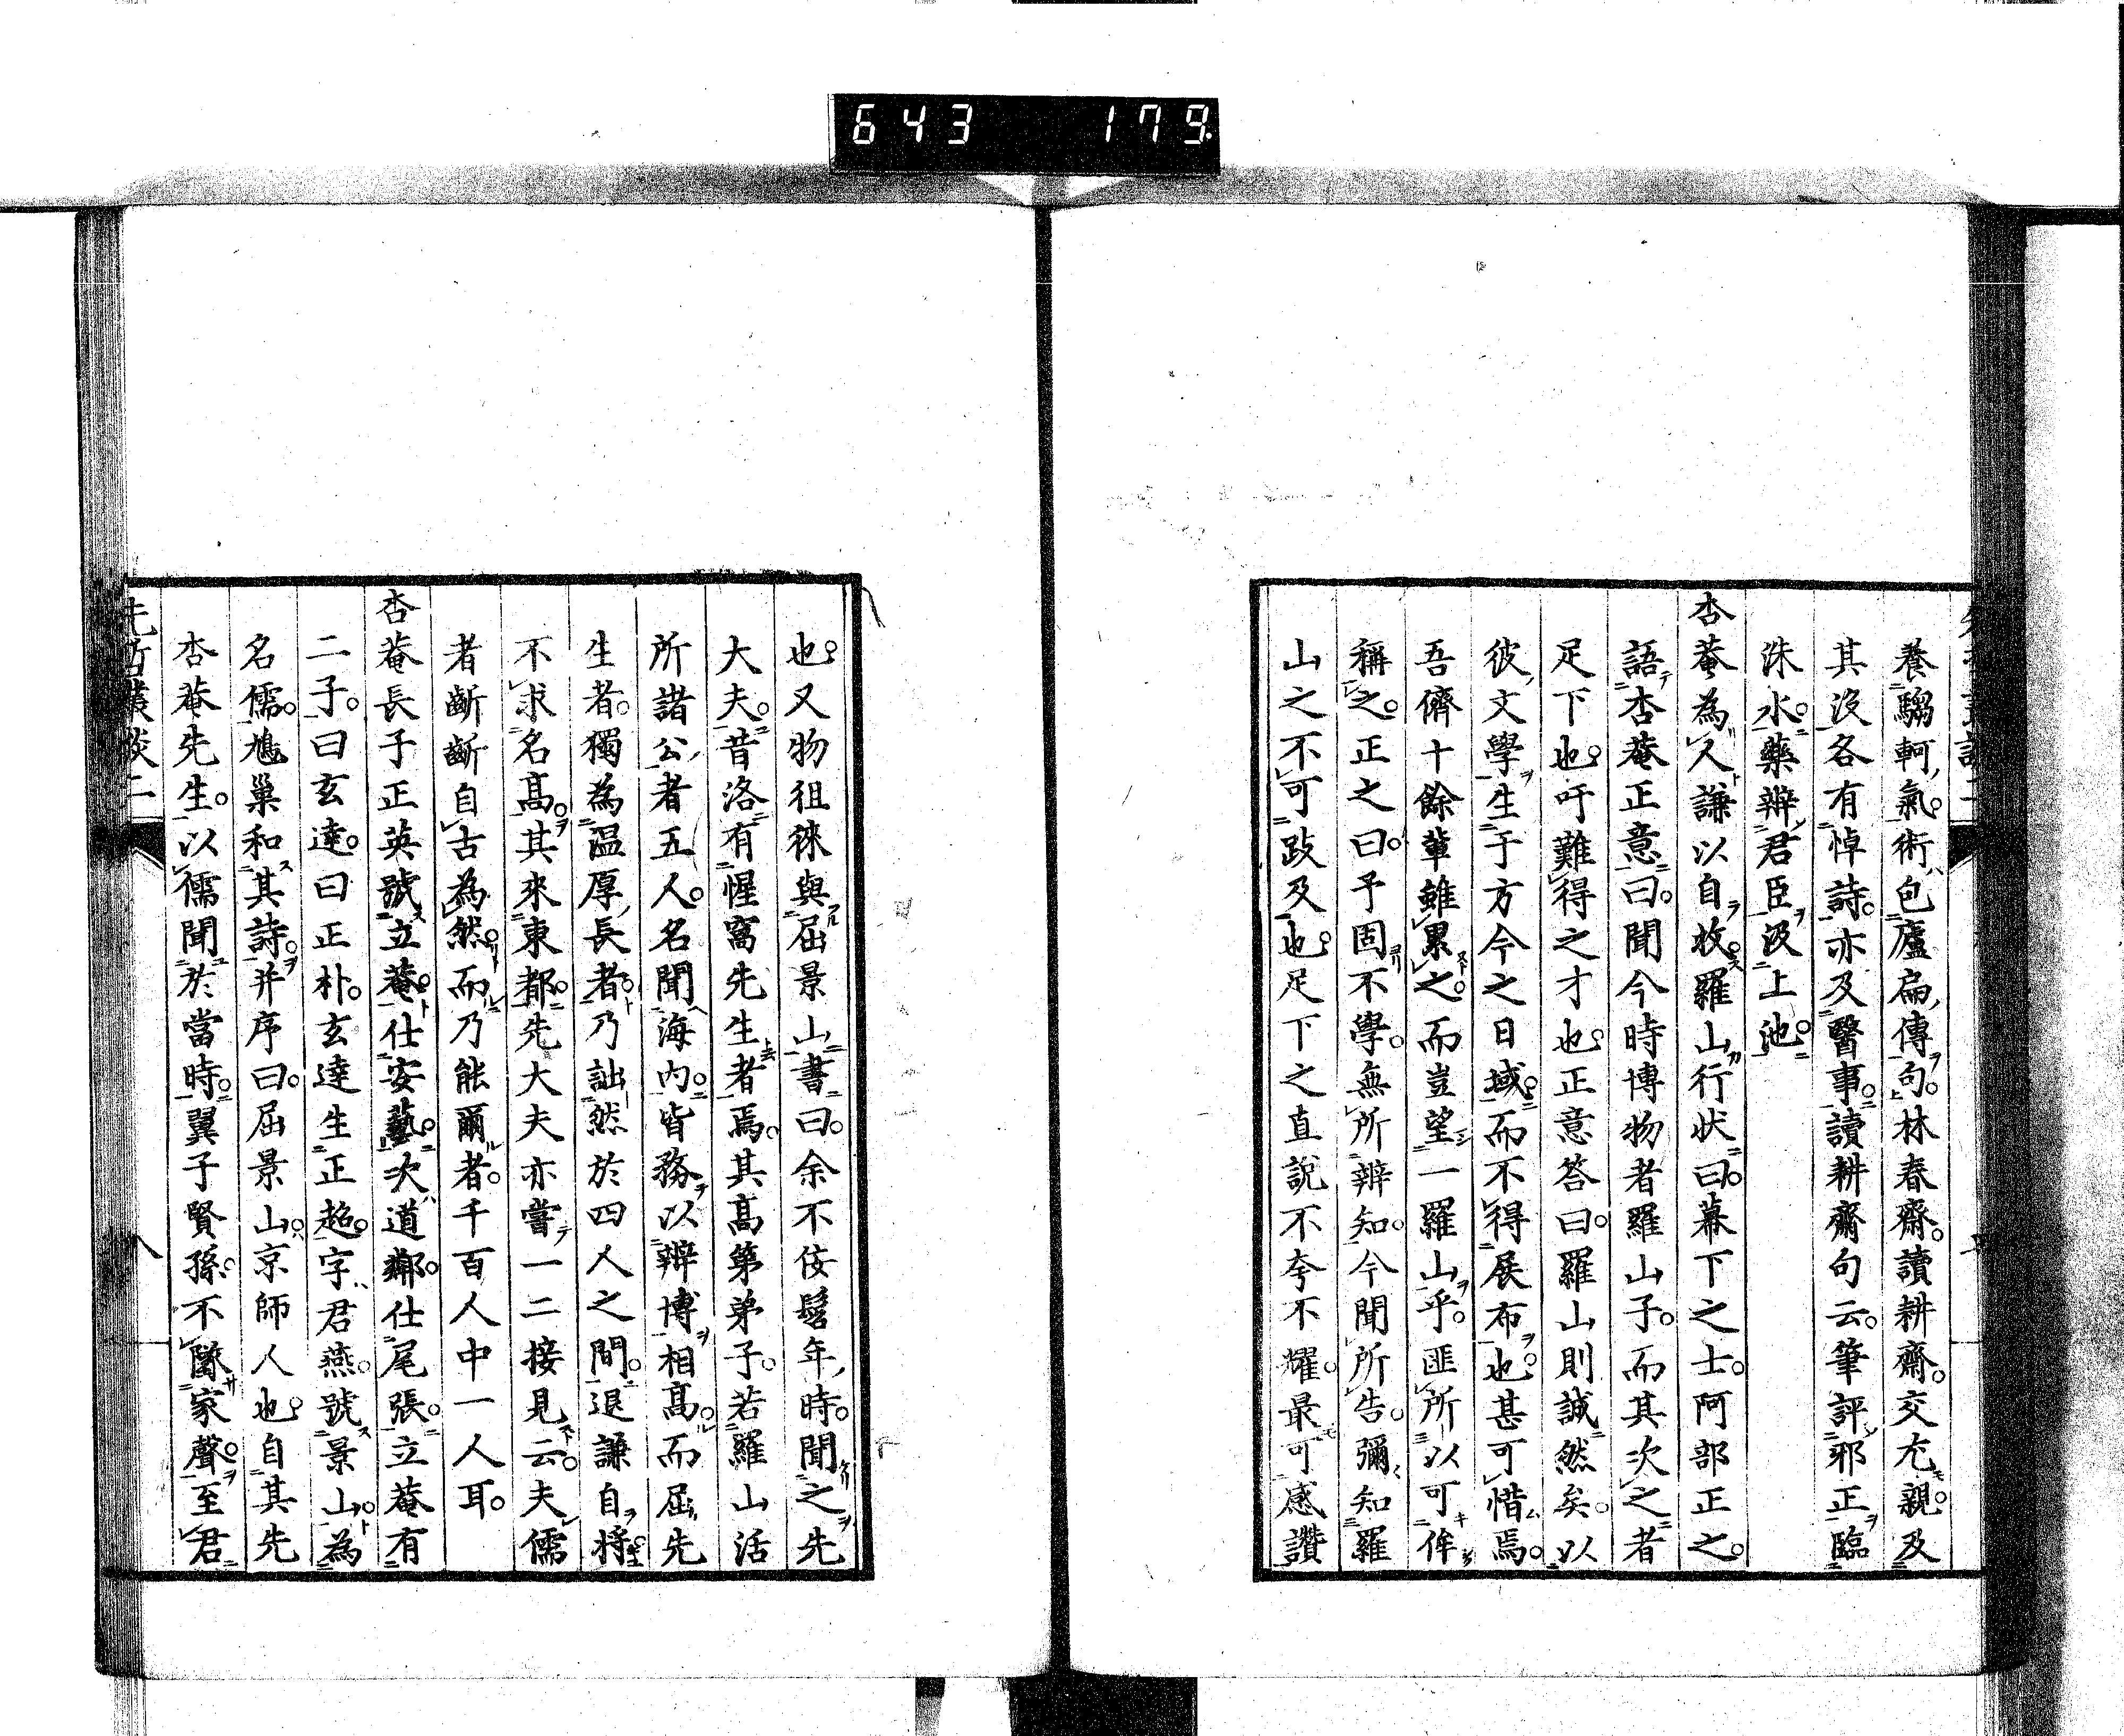 643 179
養騶軻氣術包廬扁傳句林春齋讀耕齋交尤親及
其沒各有悼詩亦及醫事讀耕齋句云筆評邪正臨
洙水藥辨君臣汲上池
杏菴為人謙以自牧羅山行狀曰幕下之士阿部正之
語杏菴正意曰聞今時博物者羅山子而其次之者
足下也吁難得之才也正意答曰羅山則誠然矣以
彼文學生于方今之日域而不得展布也甚可惜焉
吾儕十餘輩雖累之而豈望一羅山乎匪所以可侔
稱之正之曰予固不學無所辨知今聞所告彌知羅
山之不可跂及也足下之直說不夸不耀最可感讚
也又物徂徠與屈景山書曰余不佞髫年時聞之先
大夫昔洛有惺窩先生者焉其高第弟子若羅山活
所諸公者五人名聞海內皆務以辨博相高而屈先
生者獨為温厚長者乃詘然於四人之間退謙自將
不求名高其來東都先大夫亦嘗一二接見云夫儒
者齗齗自古為然而乃能爾者千百人中一人耳
杏菴長子正英號立菴仕安藝次道鄰仕尾張立菴有
二子曰玄達曰正朴玄達生正超字君燕號景山為
名儒鳩巢和其詩并序曰屈景山京師人也自其先
杏菴先生以儒聞於當時翼子賢孫不隳家聲至君
先哲叢談二
八